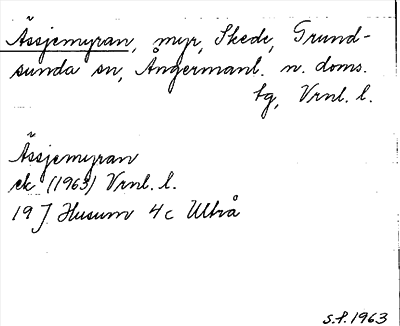 Ässjemyran, myr, Skede, Grund-
sunda sn, Ångermanl. n. doms.
tg, Vrnl. l.
Ässjemyran
ek (1963) Vrnl. l.
19 J Husum 4 c Ultrå
s.f. 1963